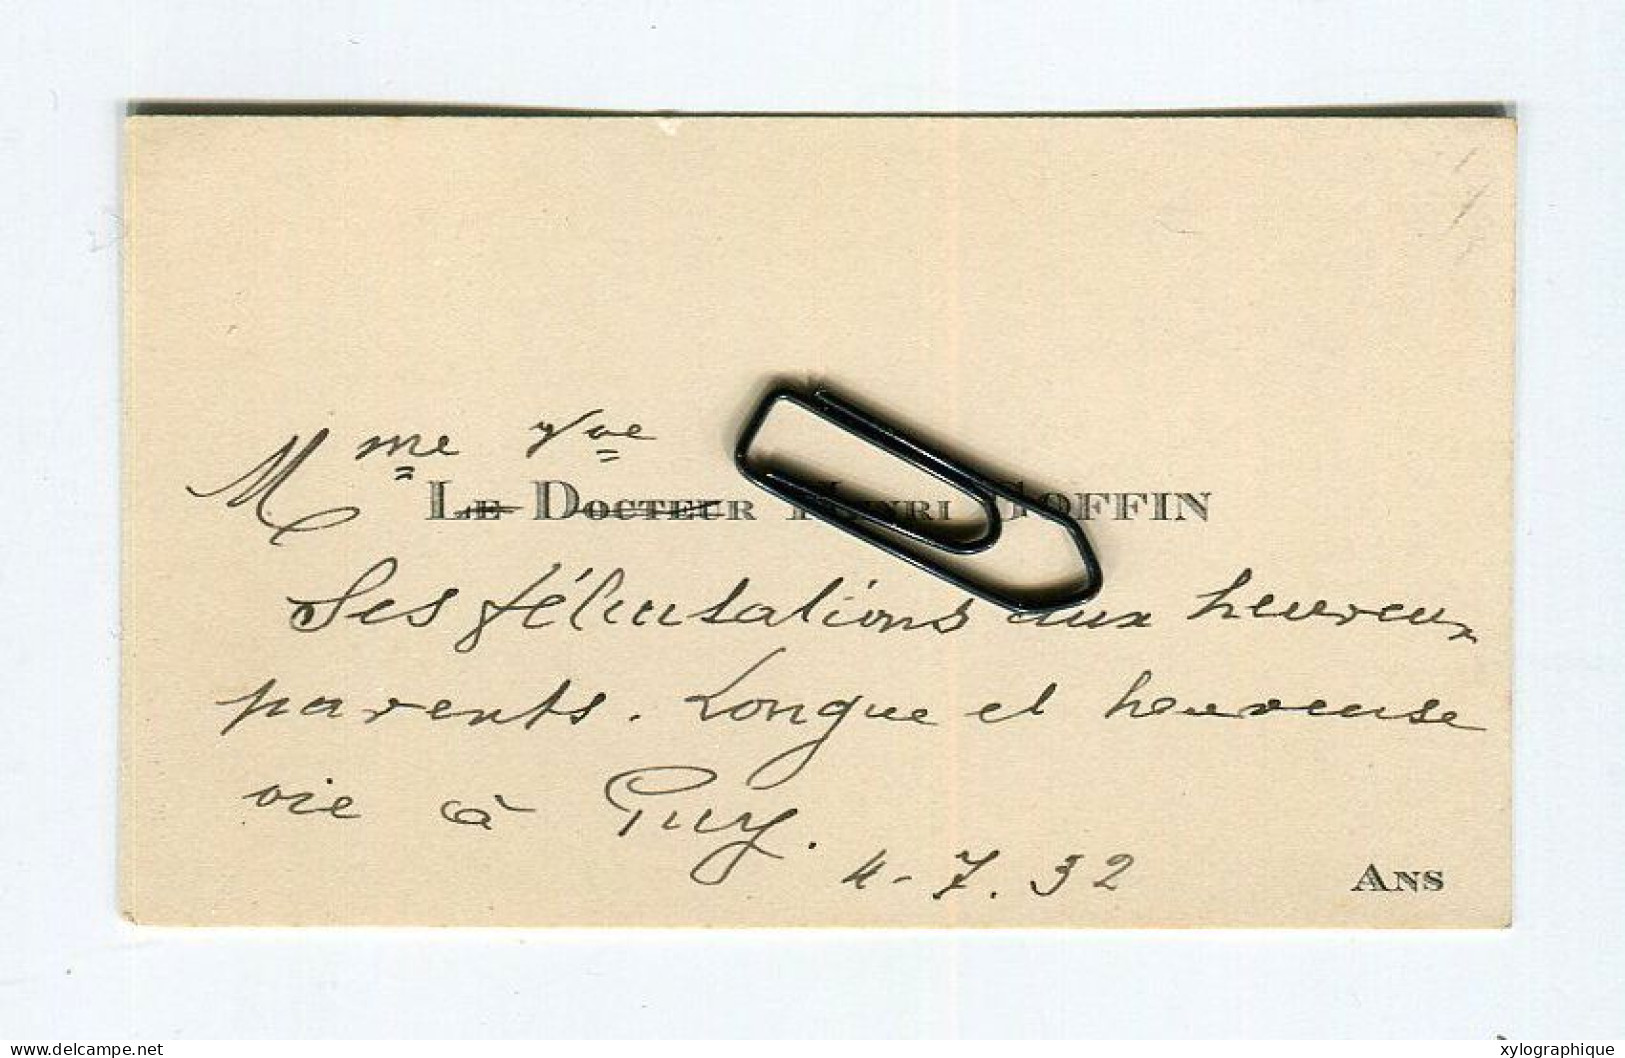 Mme Vve
LE DOCTEUR HENRI GOFFIN
Ses félicitations aux heureux
parents. Longue et heureuse
vie à Guy.
4-7.32
ANS
www.delcampe.net
xylographique